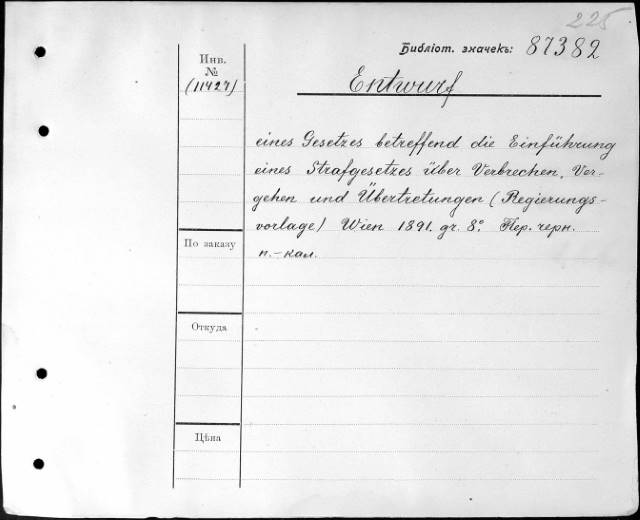 225
Библіот. значекъ: 87382
Инв.
№
(11427)
Entwurf
eines Gesetzes betreffend die Einführung
eines Strafgesetzes über Verbrechen, Ver-
gehen und Übertretungen (Regierungs-
vorlage) Wien 1891. gr. 8º. Пер. черн.
п.-кал.
По заказу
Откуда
Цѣна